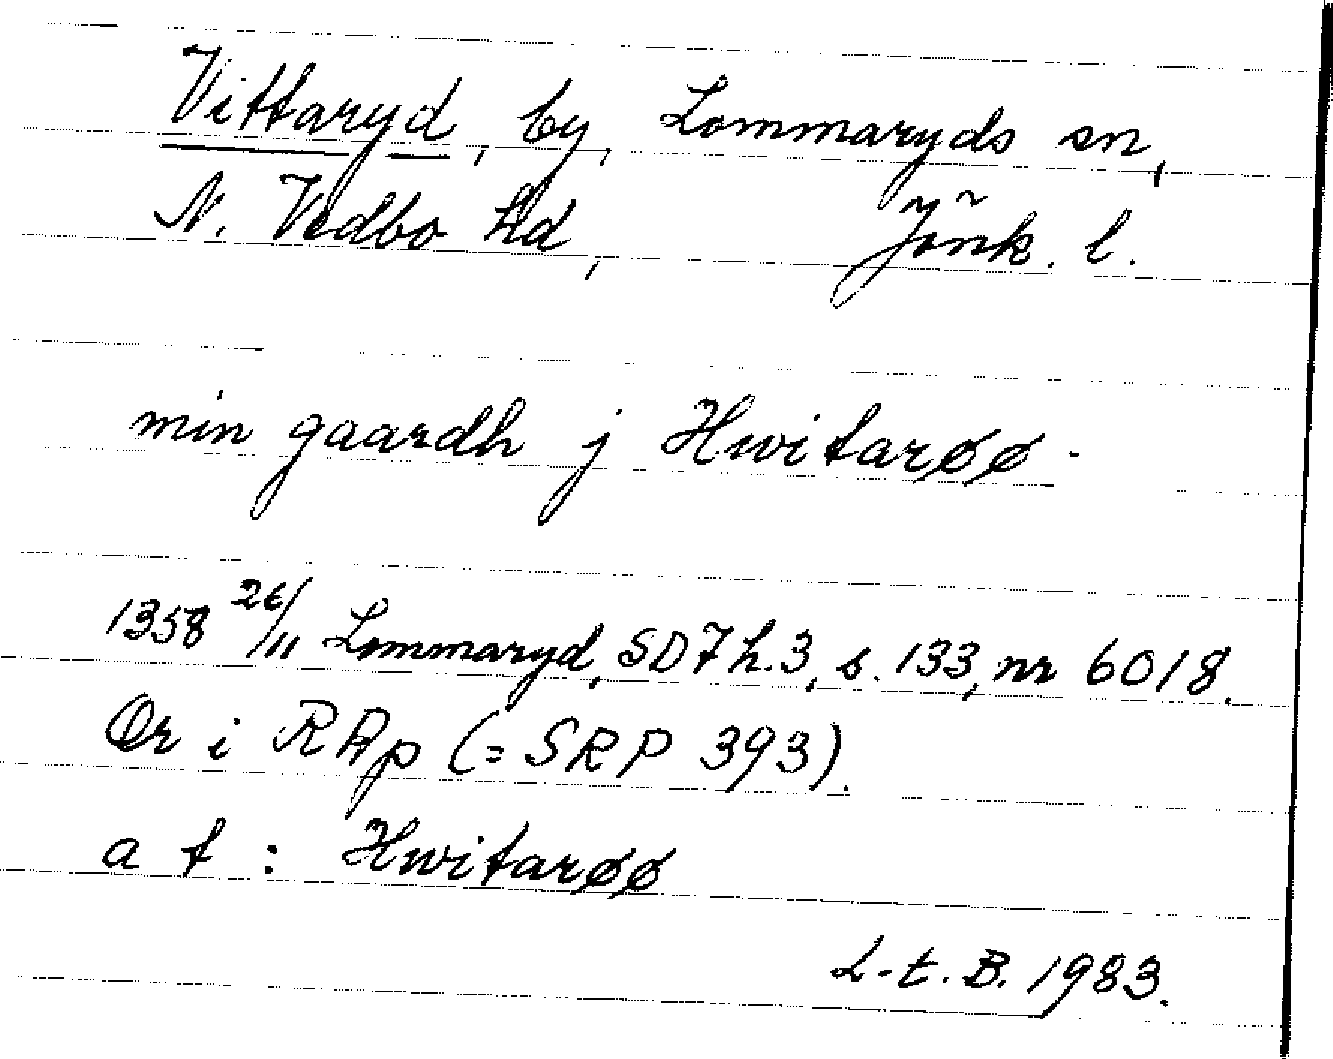 Vittaryd, by, Lommaryds sn,
N. Vedbo hd, Jönk. l.
min gaardh j Hwitarøø.
1358 26/11 Lommaryd, SD 7 h. 3, s. 133, nr 6018.
Or i RAp (= SRP 393).
a t : Hwitarøø
L-t. B. 1983.